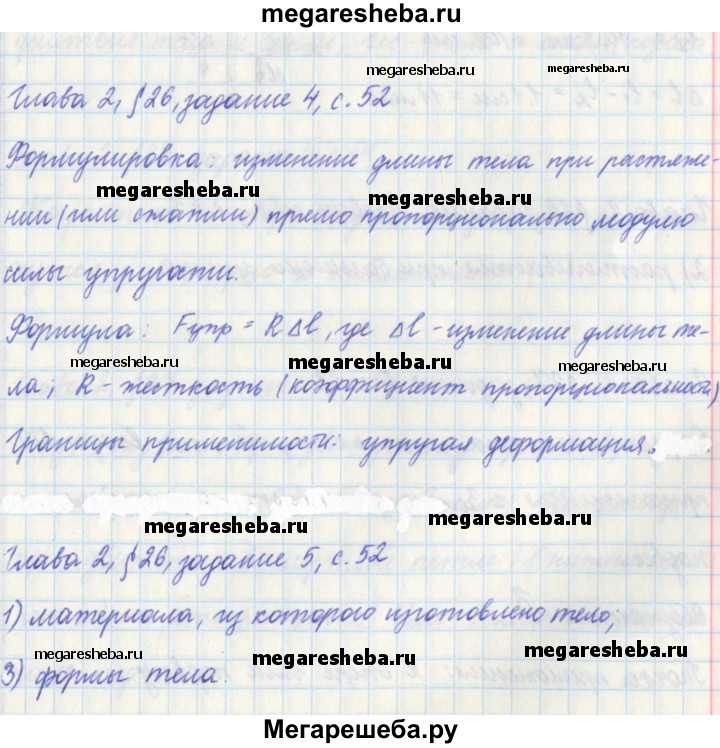 megaresheba.ru
megaresheba.ru megaresheba.ru
Глава 2, § 26, задание 4, с. 52
Формулировка: изменение длины тела при растяже-
megaresheba.ru megaresheba.ru
нии (или сжатии) прямо пропорционально модулю
силы упругости.
Формула: Fупр = RΔl, где Δl - изменение длины те-
megaresheba.ru megaresheba.ru megaresheba.ru
ла; R - жесткость (коэффициент пропорциональности)
Границы применимости: упругая деформация.
megaresheba.ru megaresheba.ru
Глава 2, § 26, задание 5, с. 52
1) материала, из которого изготовлено тело;
megaresheba.ru megaresheba.ru megaresheba.ru
3) формы тела.
Мегарешеба.ру